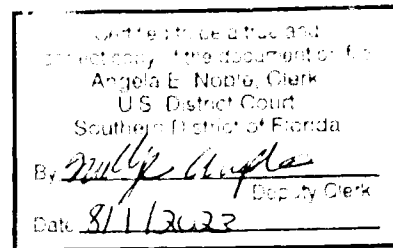 Certified to be a true and
correct copy of the document on file
Angela E. Noble, Clerk
U.S. District Court
Southern District of Florida
By
Deputy Clerk
Date 8/1/2023